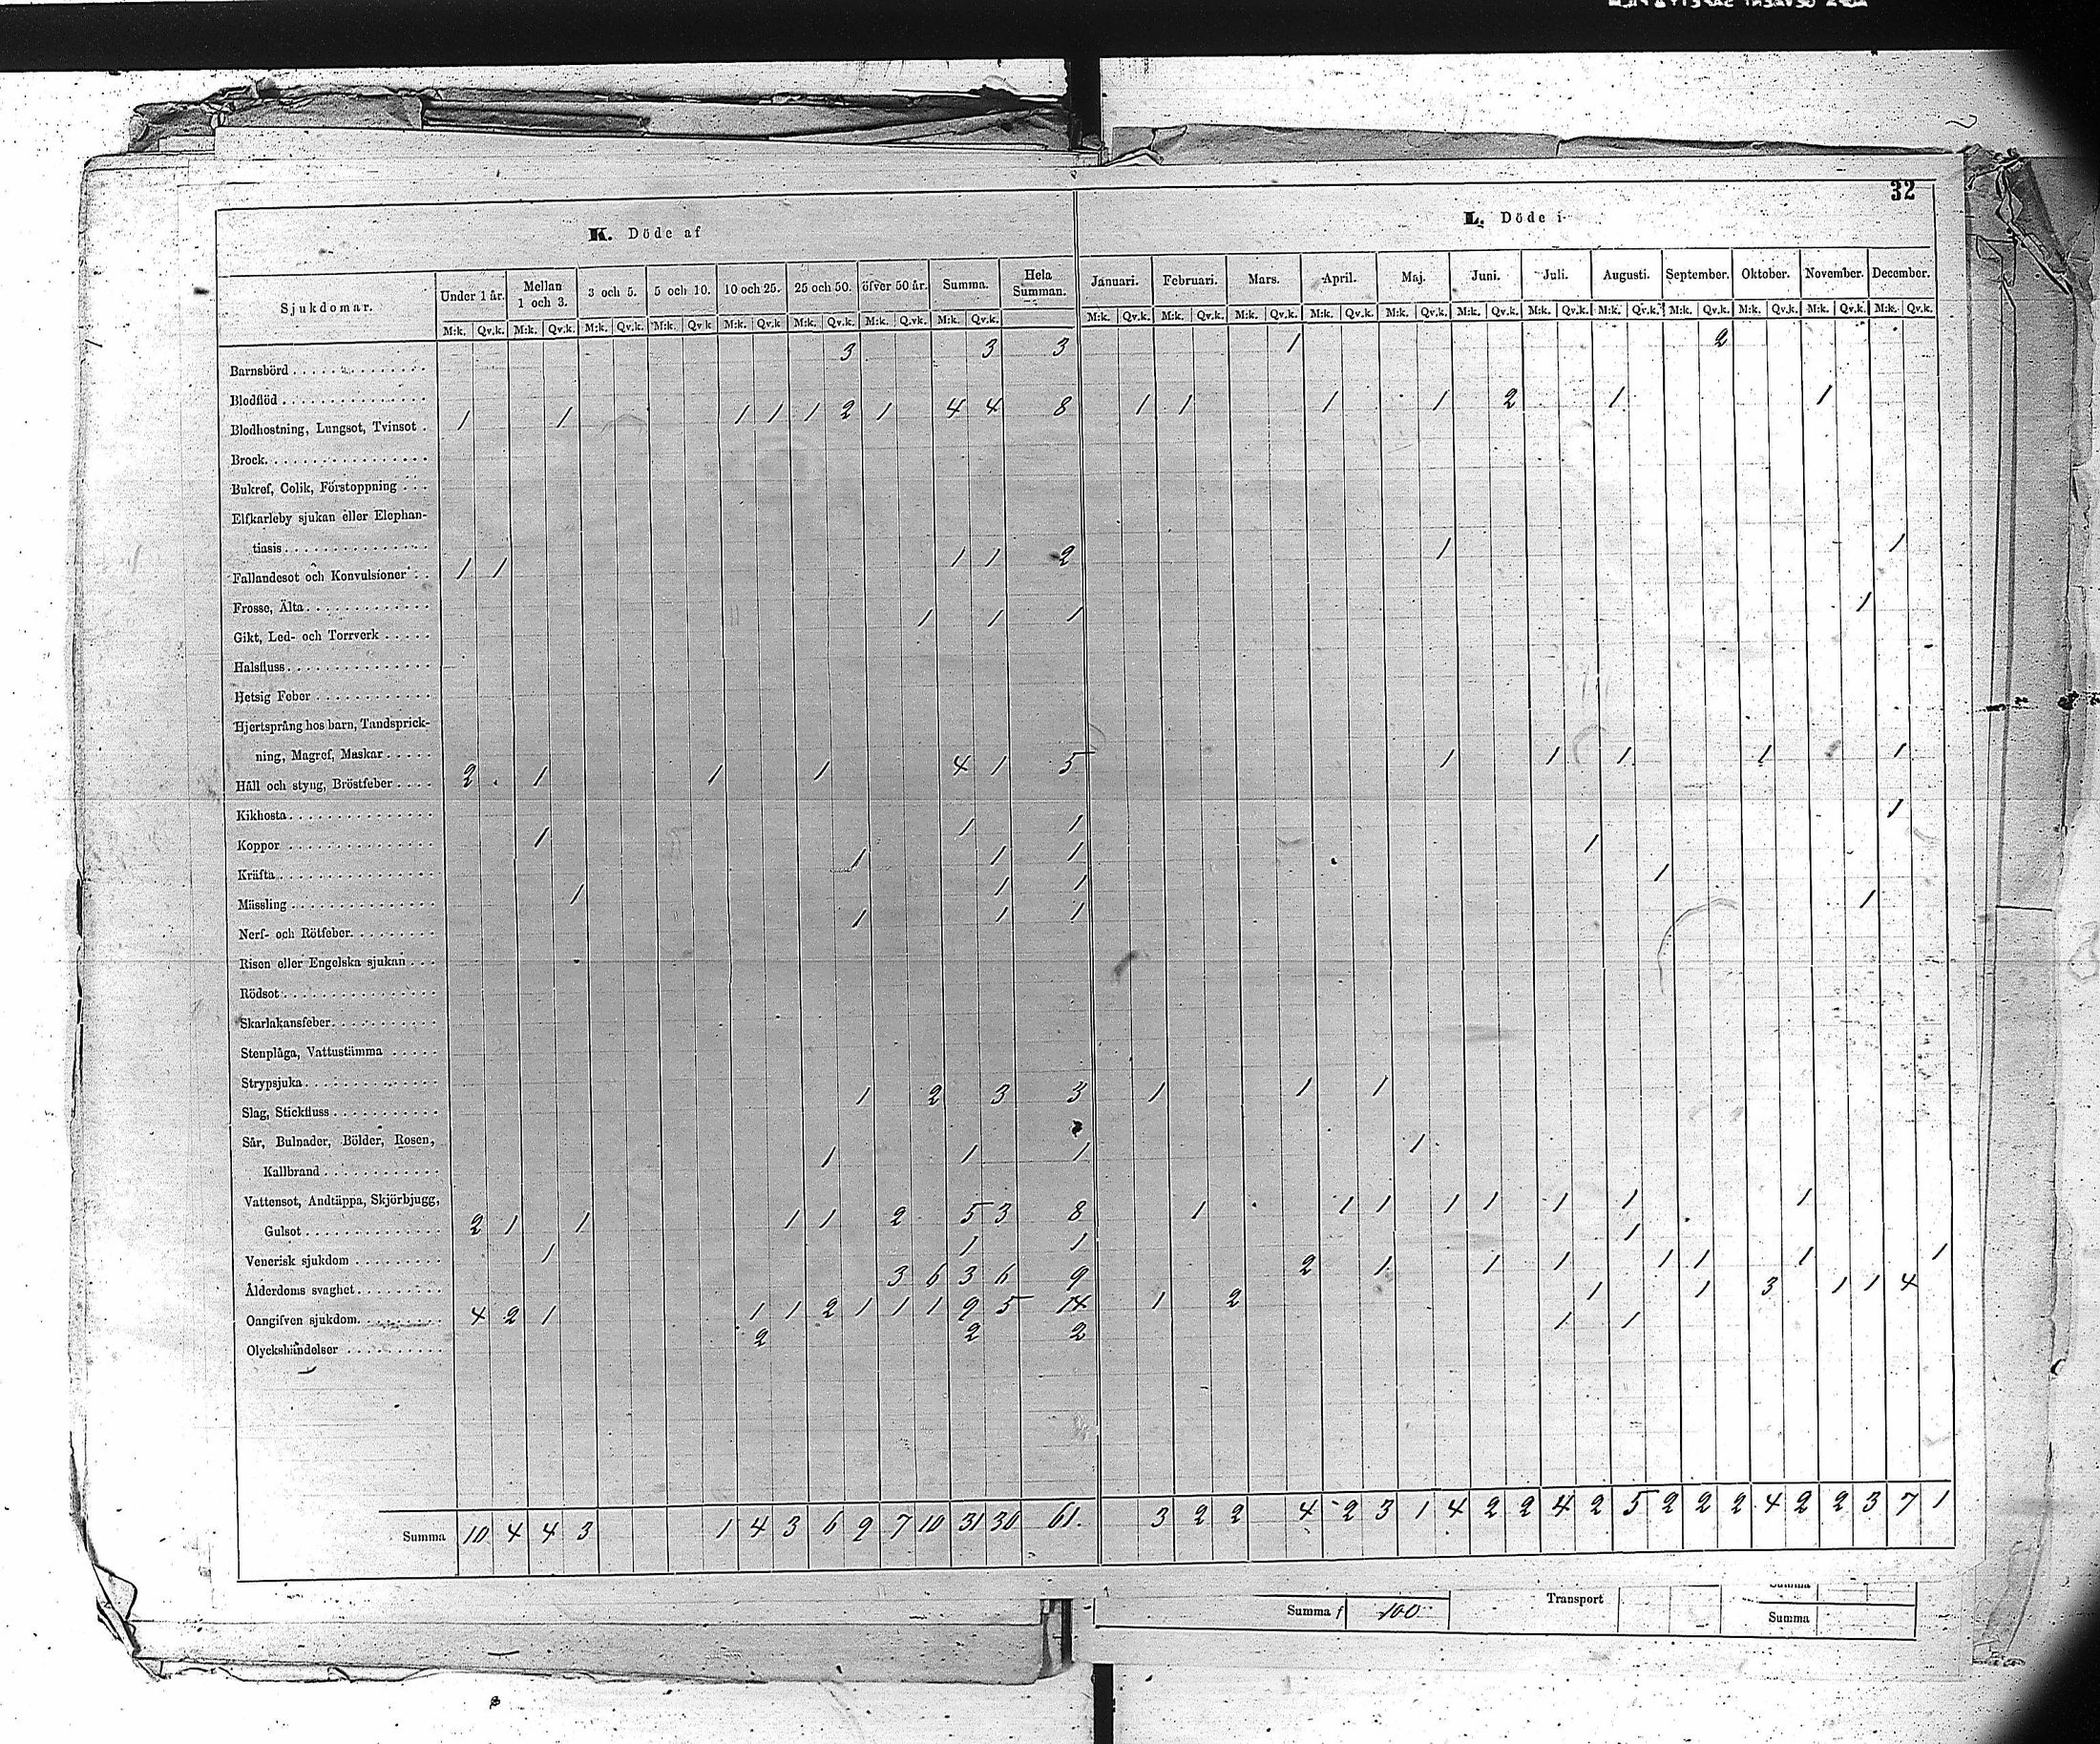 32
K. Döde af
L. Döde i
Sjukdomar. Under 1 år. Mellan 1 och 3. 3 och 5. 5 och 10. 10 och 25. 25 och 50. öfver 50 år. Summa. Hela Summan. Januari. Februari. Mars. April. Maj. Juni. Juli. Augusti. September. Oktober. November. December.
M:k. Qv.k. M:k. Qv.k. M:k. Qv.k. M:k. Qv.k M:k. Qv.k M:k. Qv.k. M:k. Qv.k. M:k. Qv.k. M:k. Qv.k. M:k. Qv.k. M:k. Qv.k. M:k. Qv.k. M:k. Qv.k. M:k. Qv.k. M:k. Qv.k. M:k. Qv.k. M:k. Qv.k. M:k. Qv.k. M:k. Qv.k. M:k. Qv.k.
Barnsbörd 3 3 3 1 2
Blodflöd
Blodhostning, Lungsot, Tvinsot 1 1 1 1 1 2 1 4 4 8 1 1 1 1 2 1 1
Brock
Bukref, Colik, Förstoppning
Elfkarleby sjukan eller Elephan-
tiasis
Fallandesot och Konvulsioner 1 1 1 1 2 1 1
Frosse, Älta
Gikt, Led- och Torrverk 1 1 1 1
Halsfluss
Hetsig Feber
Hjertsprång hos barn, Tandsprick-
ning, Magref, Maskar
Håll och styng, Bröstfeber 2 1 1 1 4 1 5 1 1 1 1 1
Kikhosta
Koppor 1 1 1 1
Kräfta 1 1 1 1
Mässling 1 1 1 1
Nerf- och Rötfeber 1 1 1 1
Risen eller Engelska sjukan
Rödsot
Skarlakansfeber
Stenplåga, Vattustämma
Strypsjuka
Slag, Stickfluss 1 2 3 3 1 1 1
Sår, Bulnader, Bölder, Rosen,
Kallbrand 1 1 1 1
Vattensot, Andtäppa, Skjörbjugg,
Gulsot 2 1 1 1 1 2 5 3 8 1 1 1 1 1 1 1 1
Venerisk sjukdom 1 1 1 1
Ålderdoms svaghet 3 6 3 6 9 2 1 1 1 1 1 1 1
Oangifven sjukdom 4 2 1 1 1 2 1 1 1 9 5 14 1 2 1 1 3 1 1 4
Olyckshändelser 2 2 2 1 1
Summa 10 4 4 3 1 4 3 6 9 7 10 31 30 61. 3 2 2 4 2 3 1 4 2 2 4 2 5 2 2 2 4 2 2 3 7 1
Summa
Summa 100 Transport Summa